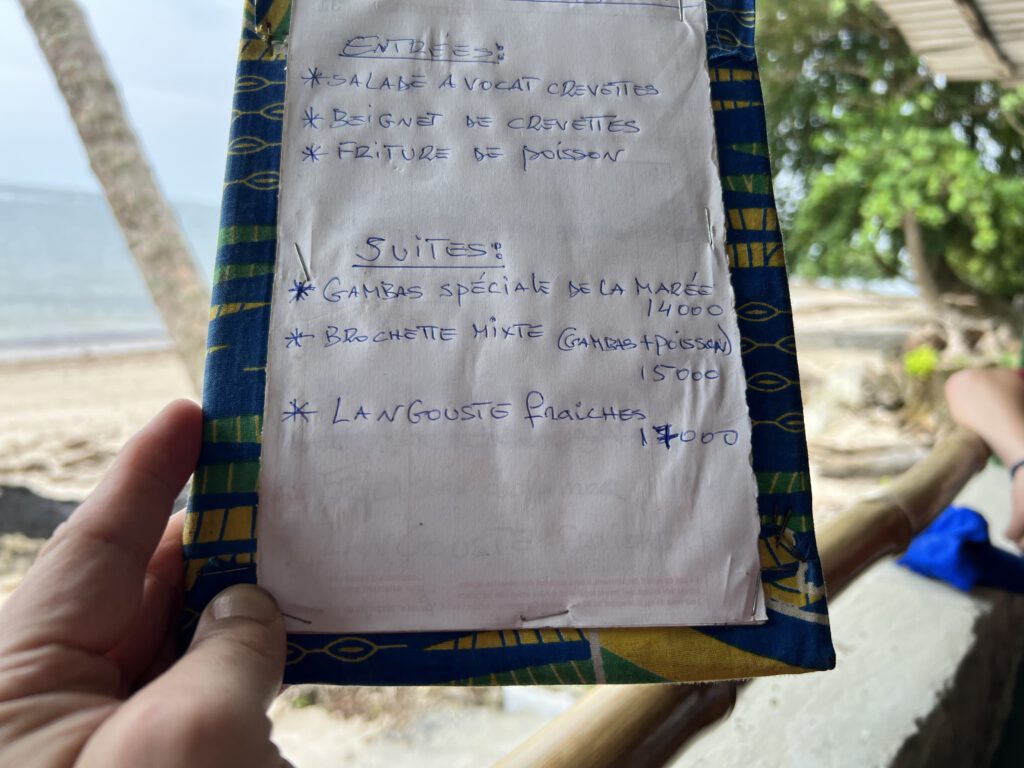 ENTRÉES:
* SALADE AVOCAT CREVETTES
* BEIGNET DE CREVETTES
* FRITURE DE POISSON
SUITES:
* GAMBAS SPÉCIALE DE LA MARÉE
14000
* BROCHETTE MIXTE (GAMBAS + POISSON)
15000
* LANGOUSTE fRAiCHES
17000